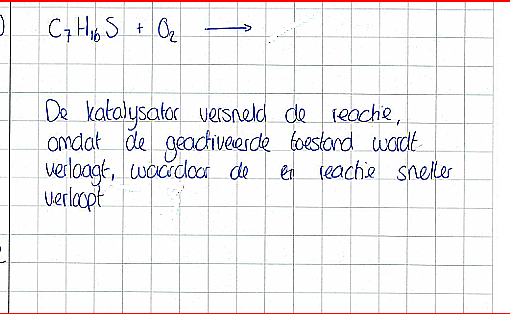 C₇H₁₆S + O₂ ⟶
De katalysator versneld de reactie,
omdat de geactiveerde toestand wordt
verlaagt, waardoor de en reactie sneller
verloopt